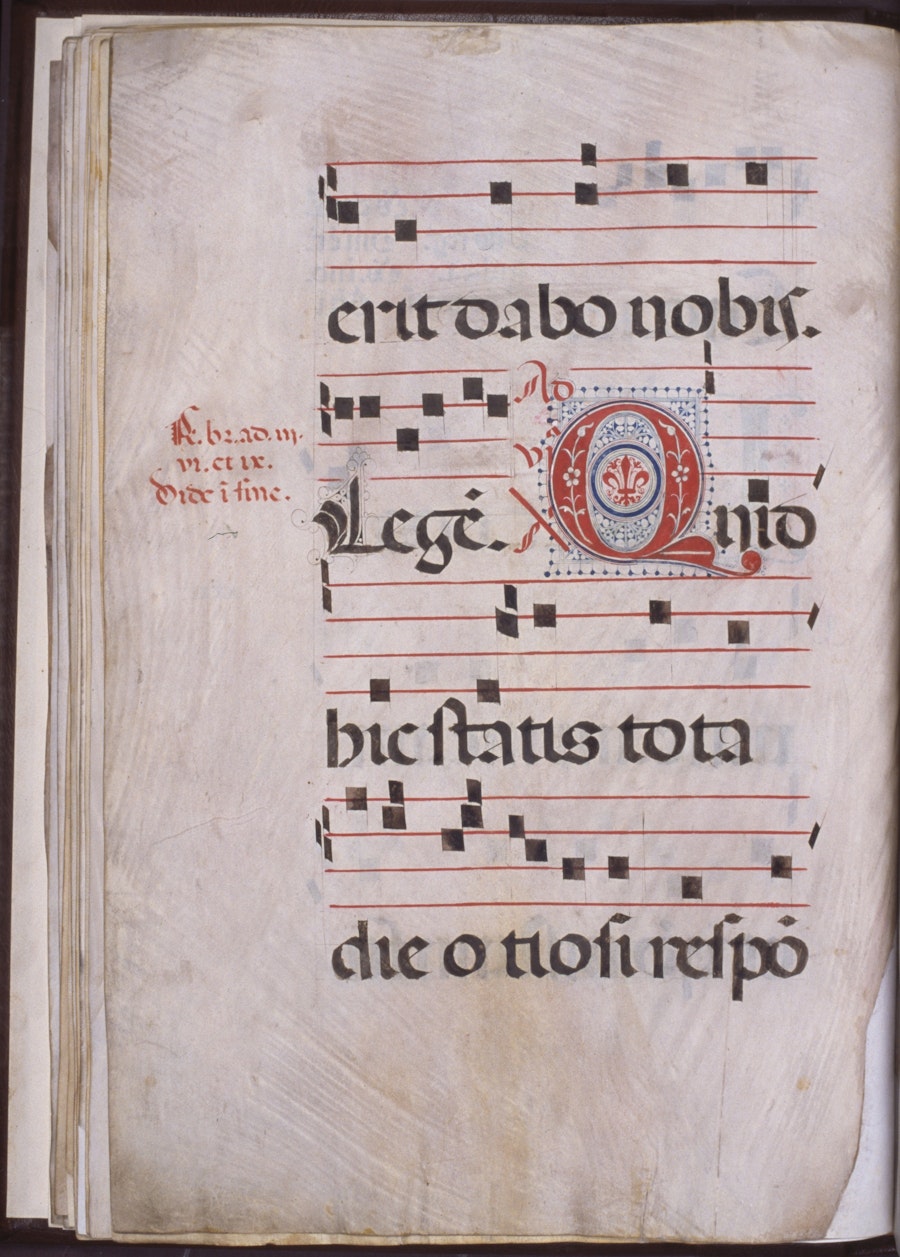 erit dabo nobis.
Ad
R. br. ad. iij.
vi. et ix.
Vide ī fine.
vjᵃ
Legē. A Quid
hic statis tota
die otiosi respō